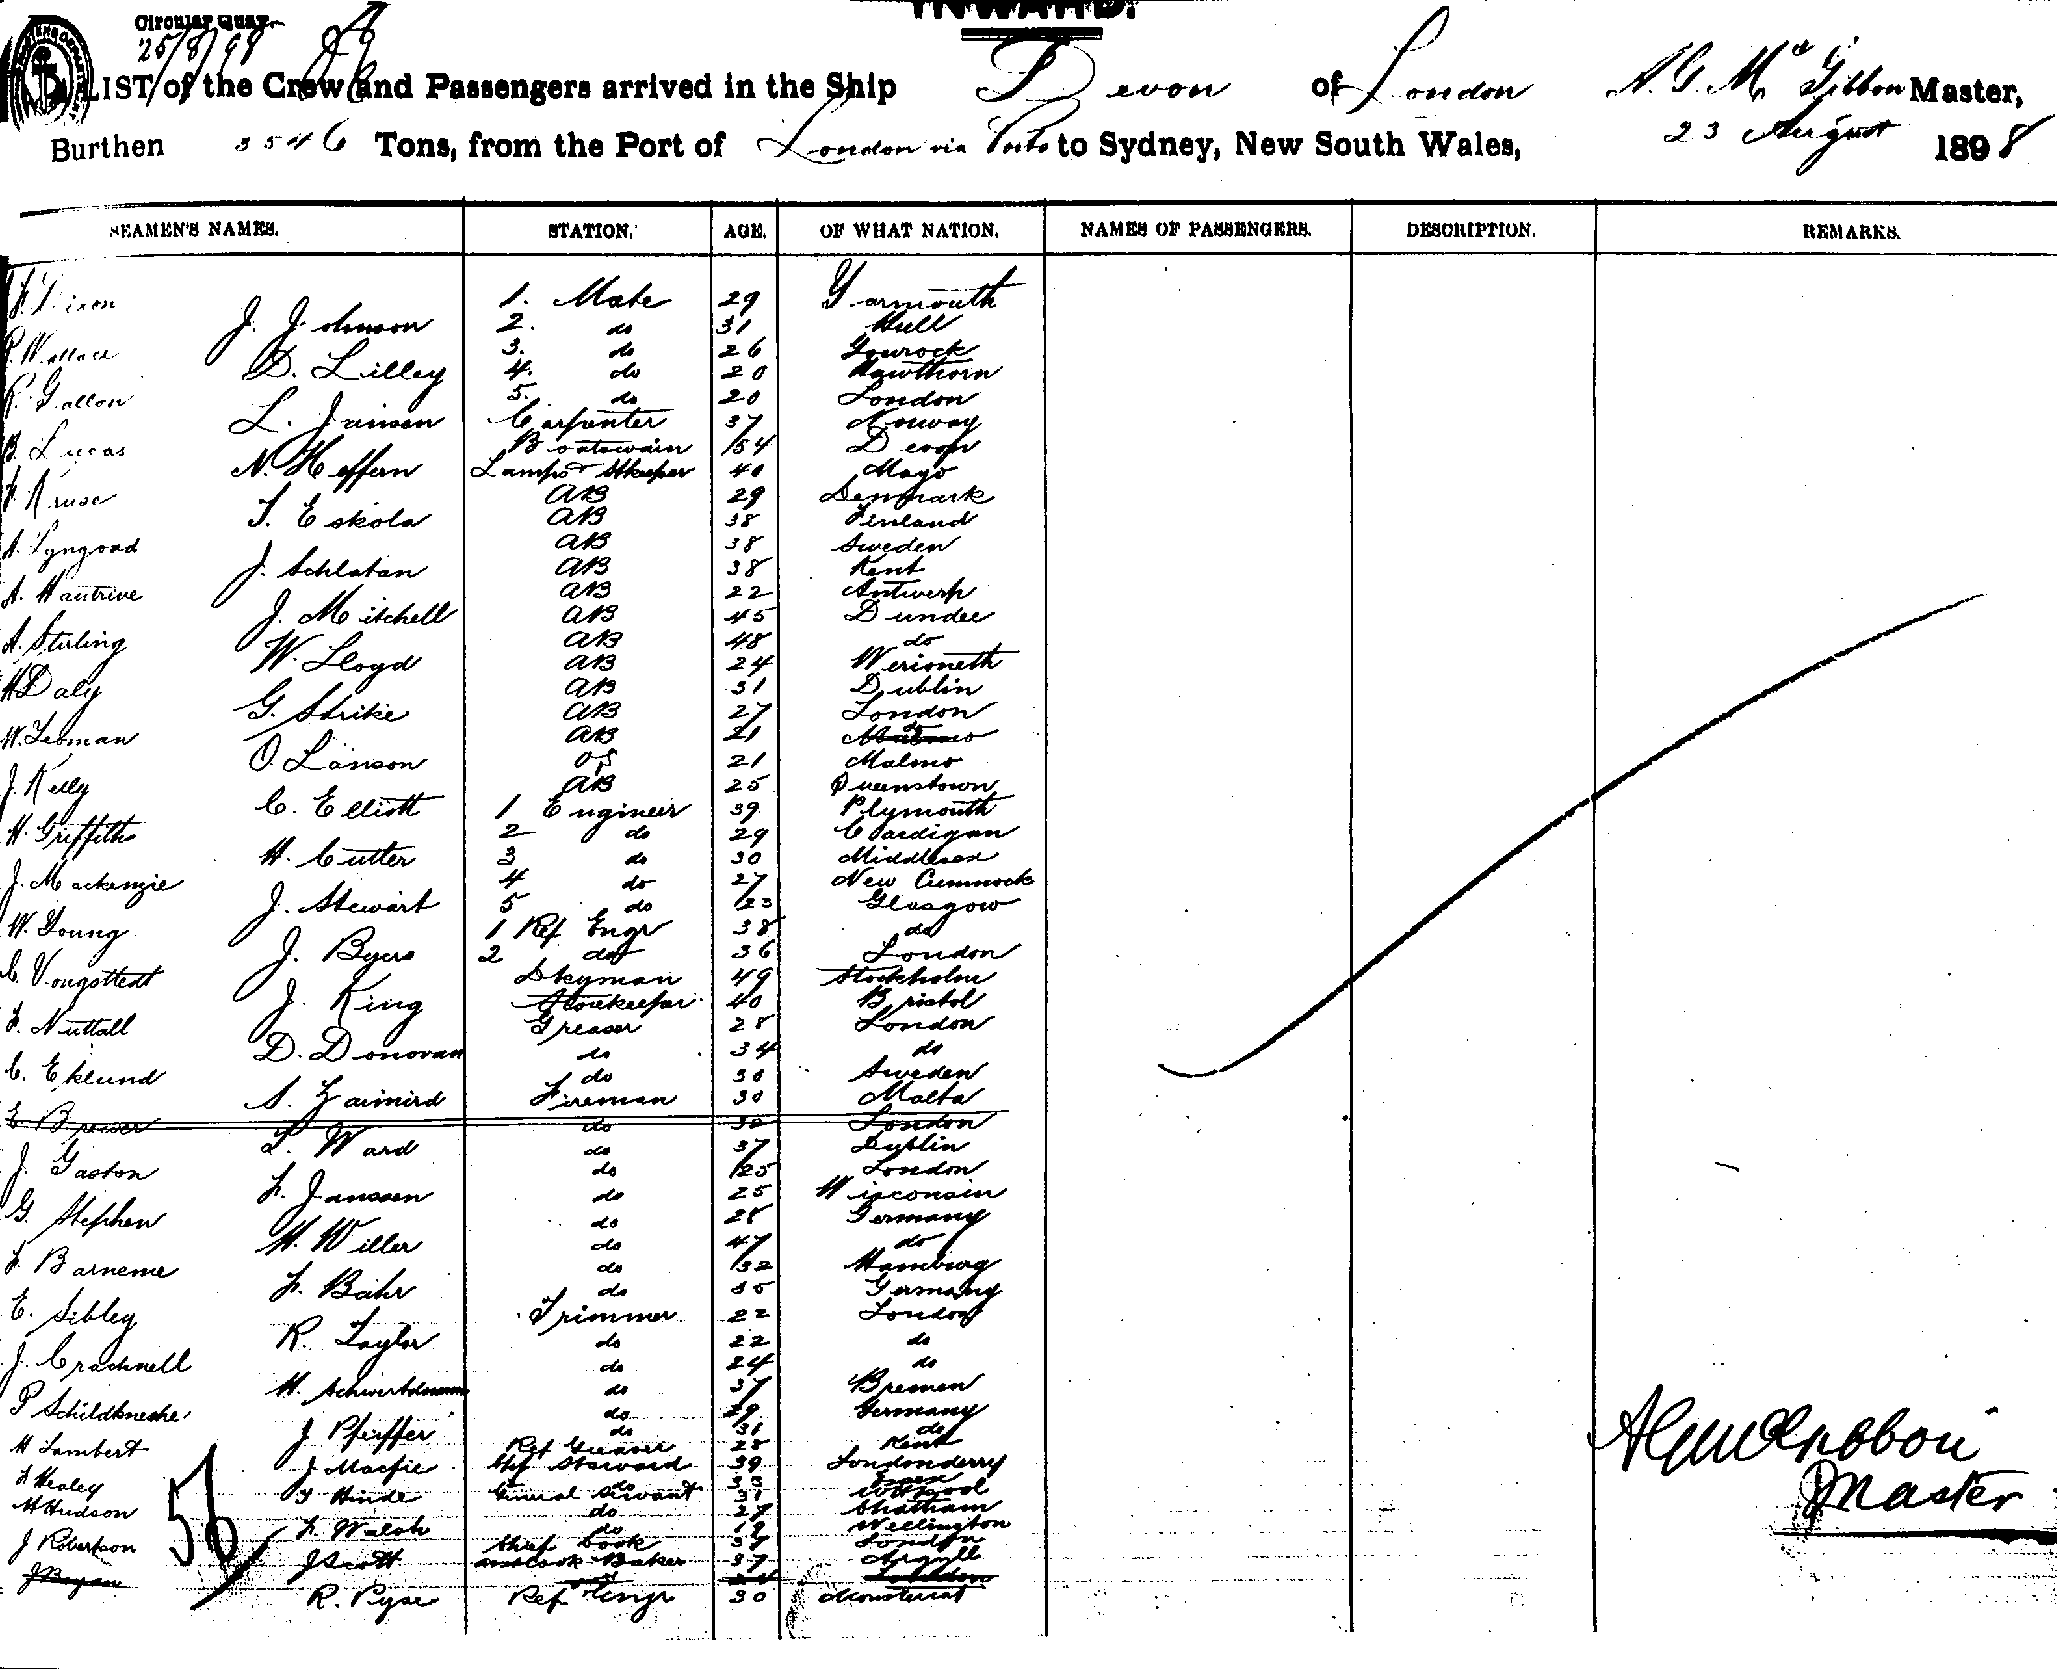 INWARD.
Circular Quay
25/8/98
LIST of the Crew and Passengers arrived in the Ship Devon of London A. G. Mc Gibbon Master,
Burthen 3546 Tons, from the Port of London via Ports to Sydney, New South Wales, 23 August 1898
SEAMEN'S NAMES. STATION. AGE. OF WHAT NATION. NAMES OF PASSENGERS. DESCRIPTION. REMARKS.
F. Dixon 1. Mate 29 Yarmouth
J. Johnson 2. do 31 Hull
R. Wallace 3. do 26 Gourock
D. Lilley 4. do 20 Hawthorn
R. Gallon 5. do 20 London
L. Jansen Carpenter 37 Norway
B. Lucas Boatswain 54 Devon
N. Heffern Lamps & Stkeeper 40 Mayo
F. Kruse AB 29 Denmark
T. Eskola AB 38 Finland
A. Lyngoad AB 38 Sweden
J. Schlatan AB 38 Kent
A. Hautrive AB 22 Antwerp
J. Mitchell AB 45 Dundee
A. Stirling AB 48 do
W. Lloyd AB 24 Merioneth
H Daly AB 31 Dublin
G. Strike AB 27 London
W. Lebman AB 21 do
O Lanson OS 21 Malmo
J. Kelly AB 25 Queenstown
C. Elliott 1 Engineer 39 Plymouth
H. Griffiths 2 do 29 Cardigan
H. Cutter 3 do 30 Middlesex
J. Mackenzie 4 do 27 New Cumnock
J. Stewart 5 do 23 Glasgow
W. Young 1 Ref Engr 38 do
J. Byers 2 do 36 London
C. Vougsttedt Dkyman 49 Stockholm
J. King Storekeeper 40 Bristol
F. Nuttall Greaser 28 London
D. Donovan do 34 do
C. Eklund do 30 Sweden
S. Zaimird Fireman 30 Malta
E Brewer do 30 London
L. Ward do 37 Dublin
J. Gaston do 25 London
F. Janssen do 25 Wisconsin
G. Stephen do 28 Germany
H. Willer do 47 do
F. Barneme do 32 Hamburg
F. Bahr do 35 Germany
E. Sibley Trimmer 22 London
R. Taylor do 22 do
J. Cracknell do 24 do
H. do 37 Bremen
P Schildkneche do 29 Germany
J Pfeiffer do 31 do
H Lambert Ref Greaser 28 Kent
J Macfie Chf Steward 39 Londonderry
F Healey do 33 Essex
T Hinde General Servant 31 Liverpool
H Hudson do 27 Chatham
F. Walsh do 19 Wellington
J Robertson Chief Cook 37 London
J Scott Baker 37 Argyll
J Bryan 24 London
R. Pyse Ref Engr 30 Monstserat
56
A G McGibbon
Master